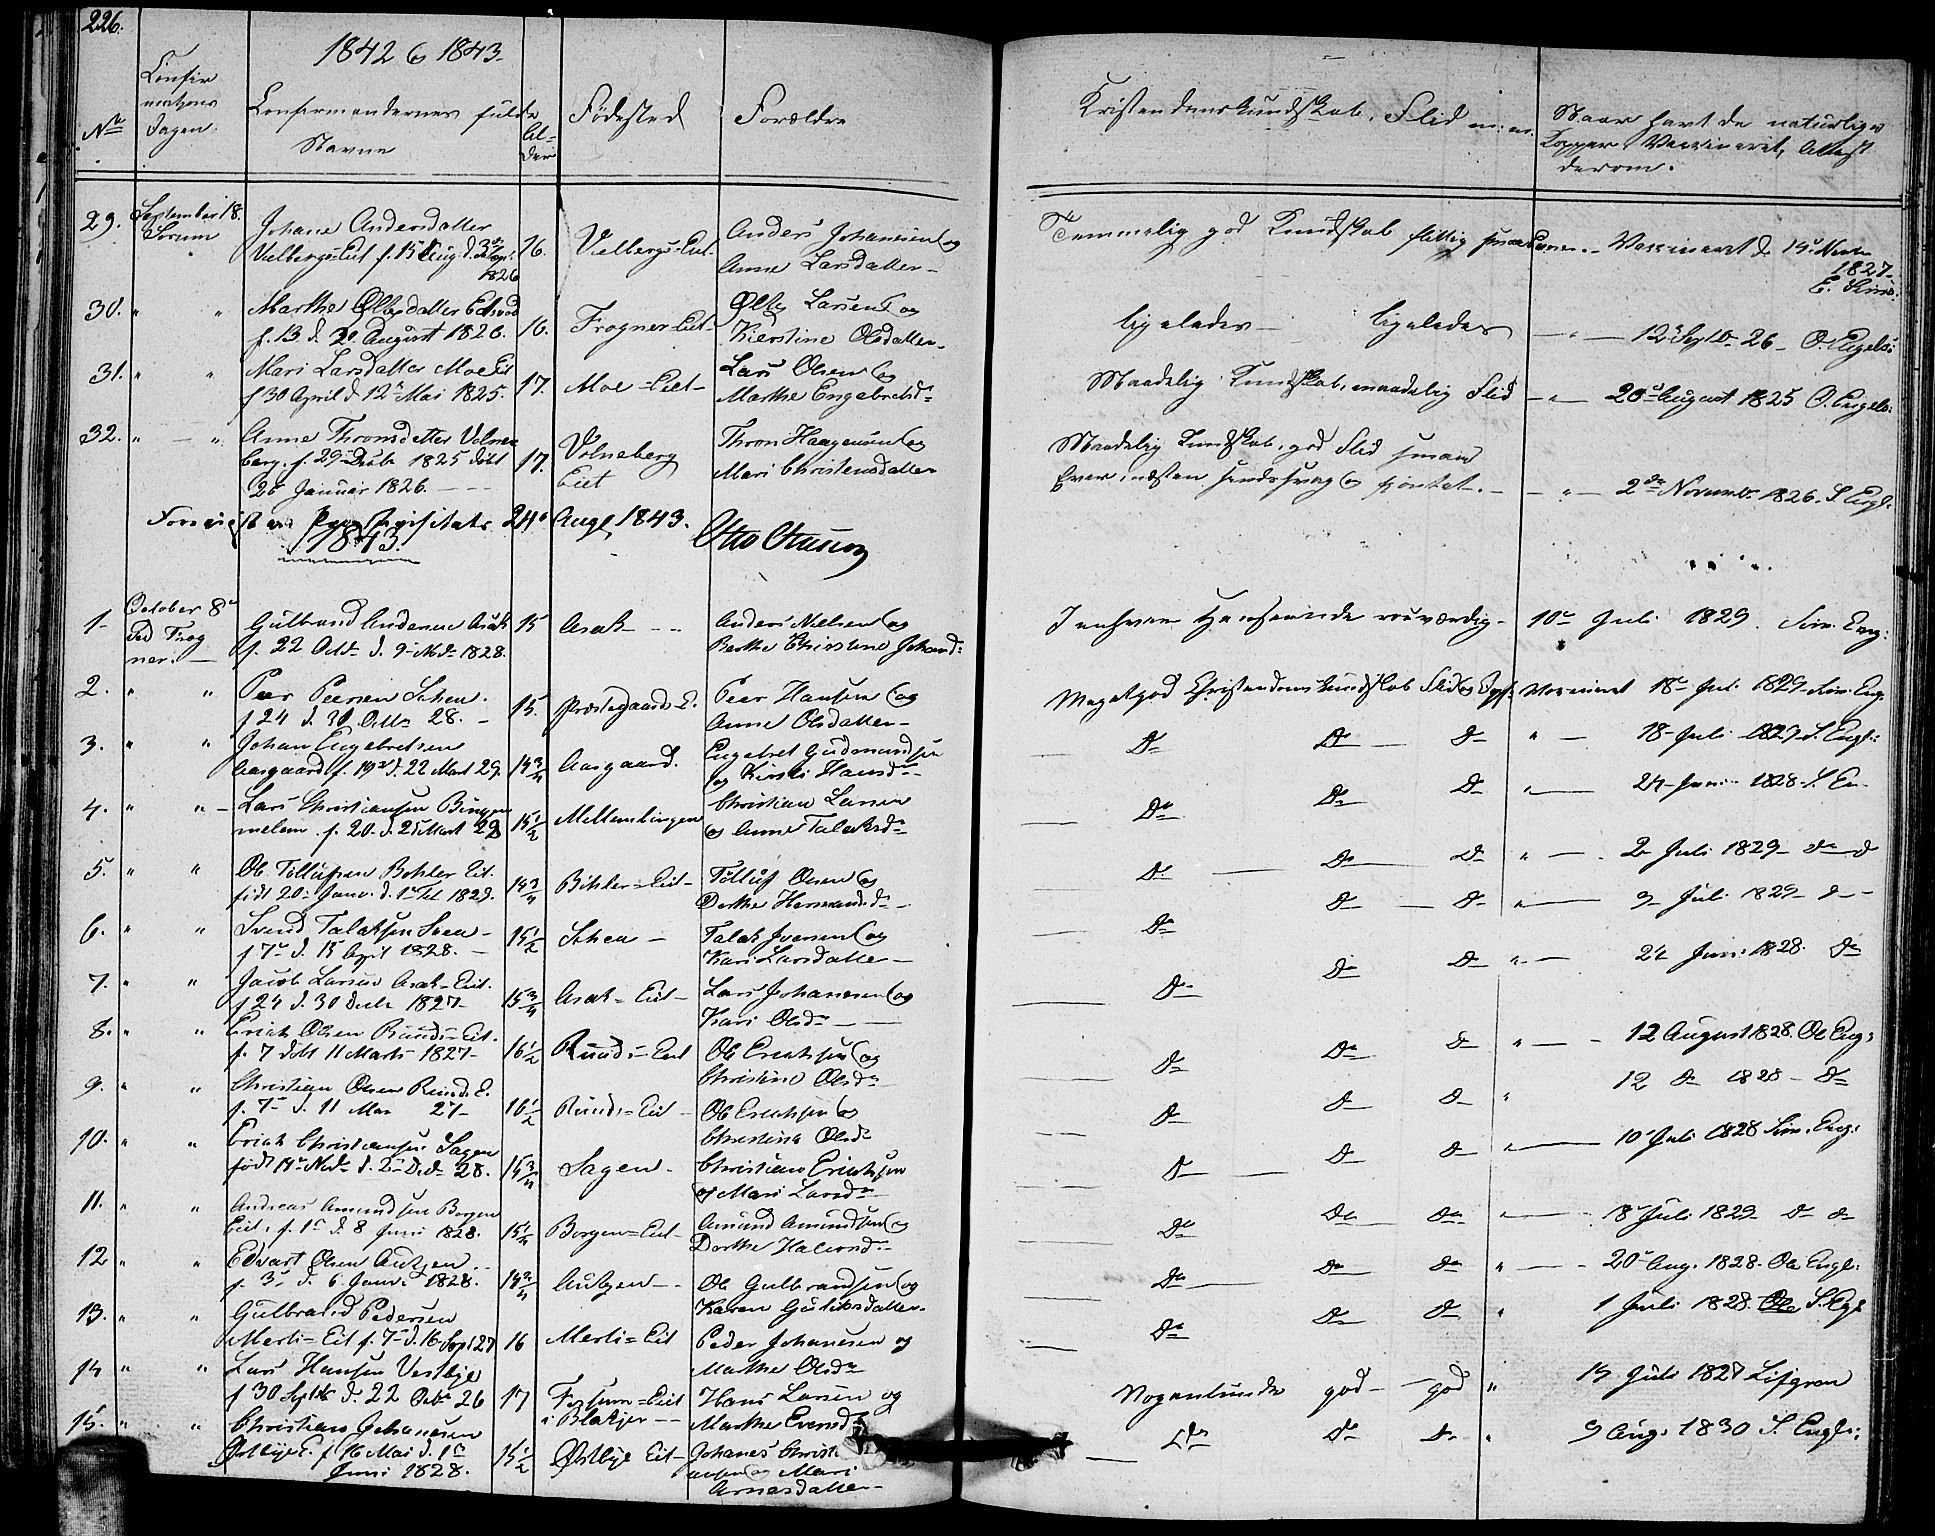 226.
1842 og 1843.
No
Confirmationsdagen.
Confirmandernes fulde Navne
Alder
Fødested
Forældre
Kristendomskundskab, Flid m:m.
Naar havt de naturlige Kopper, Vaccineret, Attest derom.
29. September 18. Sørum
Johane Andersdatter
16.
Anders Johanesen og
Anne Larsdatter
Temmelig god Kundskab flittig
Vaccineret d. 14 Novbr 1827
30. " "
Marthe
f. 13 d. 20 August 1826.
16.
Frogner-Eiet
Larsen og
Kierstine Olsdatter
ligeledes ligeledes
12 Septbr 26 O. Engels:
31. " "
Mari Larsdatter Moe Eit
f 30 April d 12 Mai 1825.
17.
Moe-Eiet
Lars Olsen og
Marthe Engebretsdr
Maadelig Kundskab, maadelig Flid
20 August 1825 O. Engels:
32. " "
Anne Thronsdatter Volneberg. f. 29 Decbr 1825 døbt
26 Januar 1826.
17.
Volneberg
Eiet
Thron Haagensen og
Mari Christensdatter
Maadelig Kundskab, god Flid smaa
Evner, næsten
2den Novembr. 1826. S. Engl.
Foreviist ved Provstevisitats 24 Aug 1843. Otto Ottesen
1843.
1. October 8 ved Frogner.
Gulbrand Andersen Asak
f. 22 Octr d. 9 Nvbr 1828.
15
Asak
Anders Nielsen og
Berthe Christine Johansd:
10 Juli 1829. Sim. Eng:
2. " "
Peer Peersen Schea.
f 24 d. 30 Octbr 28.
15.
Præstegaards-E.
Peer Hansen og
Anne Olsdatter
Meget god Christendomskundskab Flid og
Vaccineret 18 Jul. 1829 Sim. Eng.
3. " "
Johan Engebretsen
Aasgaard f. 19 d. 22 Mart 29.
14 3/4
Aasgaard.
Engebret Gudmundsen
og Kirsti Hansdr
Do Do Do
18 Juli 1829 S. Engl:
4. " "
Lars Christiansen Bingen
mellem. f. 20. d. 25 Mart 28
15 1/2
Mellembingen
Christian Larsen
og Anne Talaksdr
Do Do Do
24 Juni 1828 S. En
5. " "
Ole Tollufsen Bøhler Eit.
født 20 Janv. d. 1 1829.
14 3/4
Bøhler=Eit
Tolluf Olsen og
Dorthe Hermansdr
Do Do Do
2 Juli 1829 do
6. " "
Svend Talaksen Schea
f 7 d. 15 April 1828.
15 1/2
Schea
Talak Iversen og
Kari Larsdatter
Do Do Do
9 Juli 1829 do
7. " "
Jacob Larsen Asak-Eiet.
f 24 d. 30 Decbr 1827
15 3/4
Asak=Eiet
Lars Johanesen og
Kari Olsdr
Do Do Do
24 Juni 1828. Do
8. " "
Erick Olsen Runds=Eit.
f. 7 døbt 11 Marts 1827
16 1/2
Runds=Eiet
Ole Ericksen og
Christine Olsdr
Do Do Do
12 August 1828. Ole Eng:
9. " "
Christian Olsen Runds E.
f. 7 d. 11 Mar 27
16 1/2
Runds=Eiet
Ole Ericksen og
Christine Olsdr
Do Do Do
12 Do 1828 Do
10. " "
Erick Christiansen Sagen
født 14 Novbr d. 2 Decbr 28.
14 3/4
Sagen
Christian Ericksen
og Mari Larsdr
Do Do Do
10 Juli 1828 Sim. Eng:
11. " "
Andreas Amundsen Borgen
Eiet. f. 1 d. 8 Juni 1828.
15 1/4
Borgen=Eiet
Amund Amundsen og
Dorthe Halvorsdr
Do Do Do
18 Juli 1829 do do
12 " "
Edvart Olsen Aubgen
f. 3 d. 6 Janv. 1828.
Aubgen
Ole Gulbrandsen og
Karen Guliksdatter
Do Do Do
20 Aug. 1828. Ole Engl:
13. " "
Gulbrand Pedersen
Merli=Eit f. 7 d. 16 Sept 27
16
Merli=Eit
Peder Johanesen og
Marthe Olsdr
Do Do Do
1 Juli 1828. S. Egl
14 " "
Lars Hansen Vestbye
f 30 Septbr d. 22 Octbr 26
17
=Eiet
i Blakjer
Hans Larsen og
Marthe Evensdr
Nogenlunde god god
14 Juli 1827
15. " "
Christian Johanesen
Østbye E. f 16 Mai d. 1
Juni 1828.
15 1/2
Østbye Eit
Johanes Christiansen og Mari
Arnesdatter
Do Do Do
9 Aug. 1830 S. Engl: